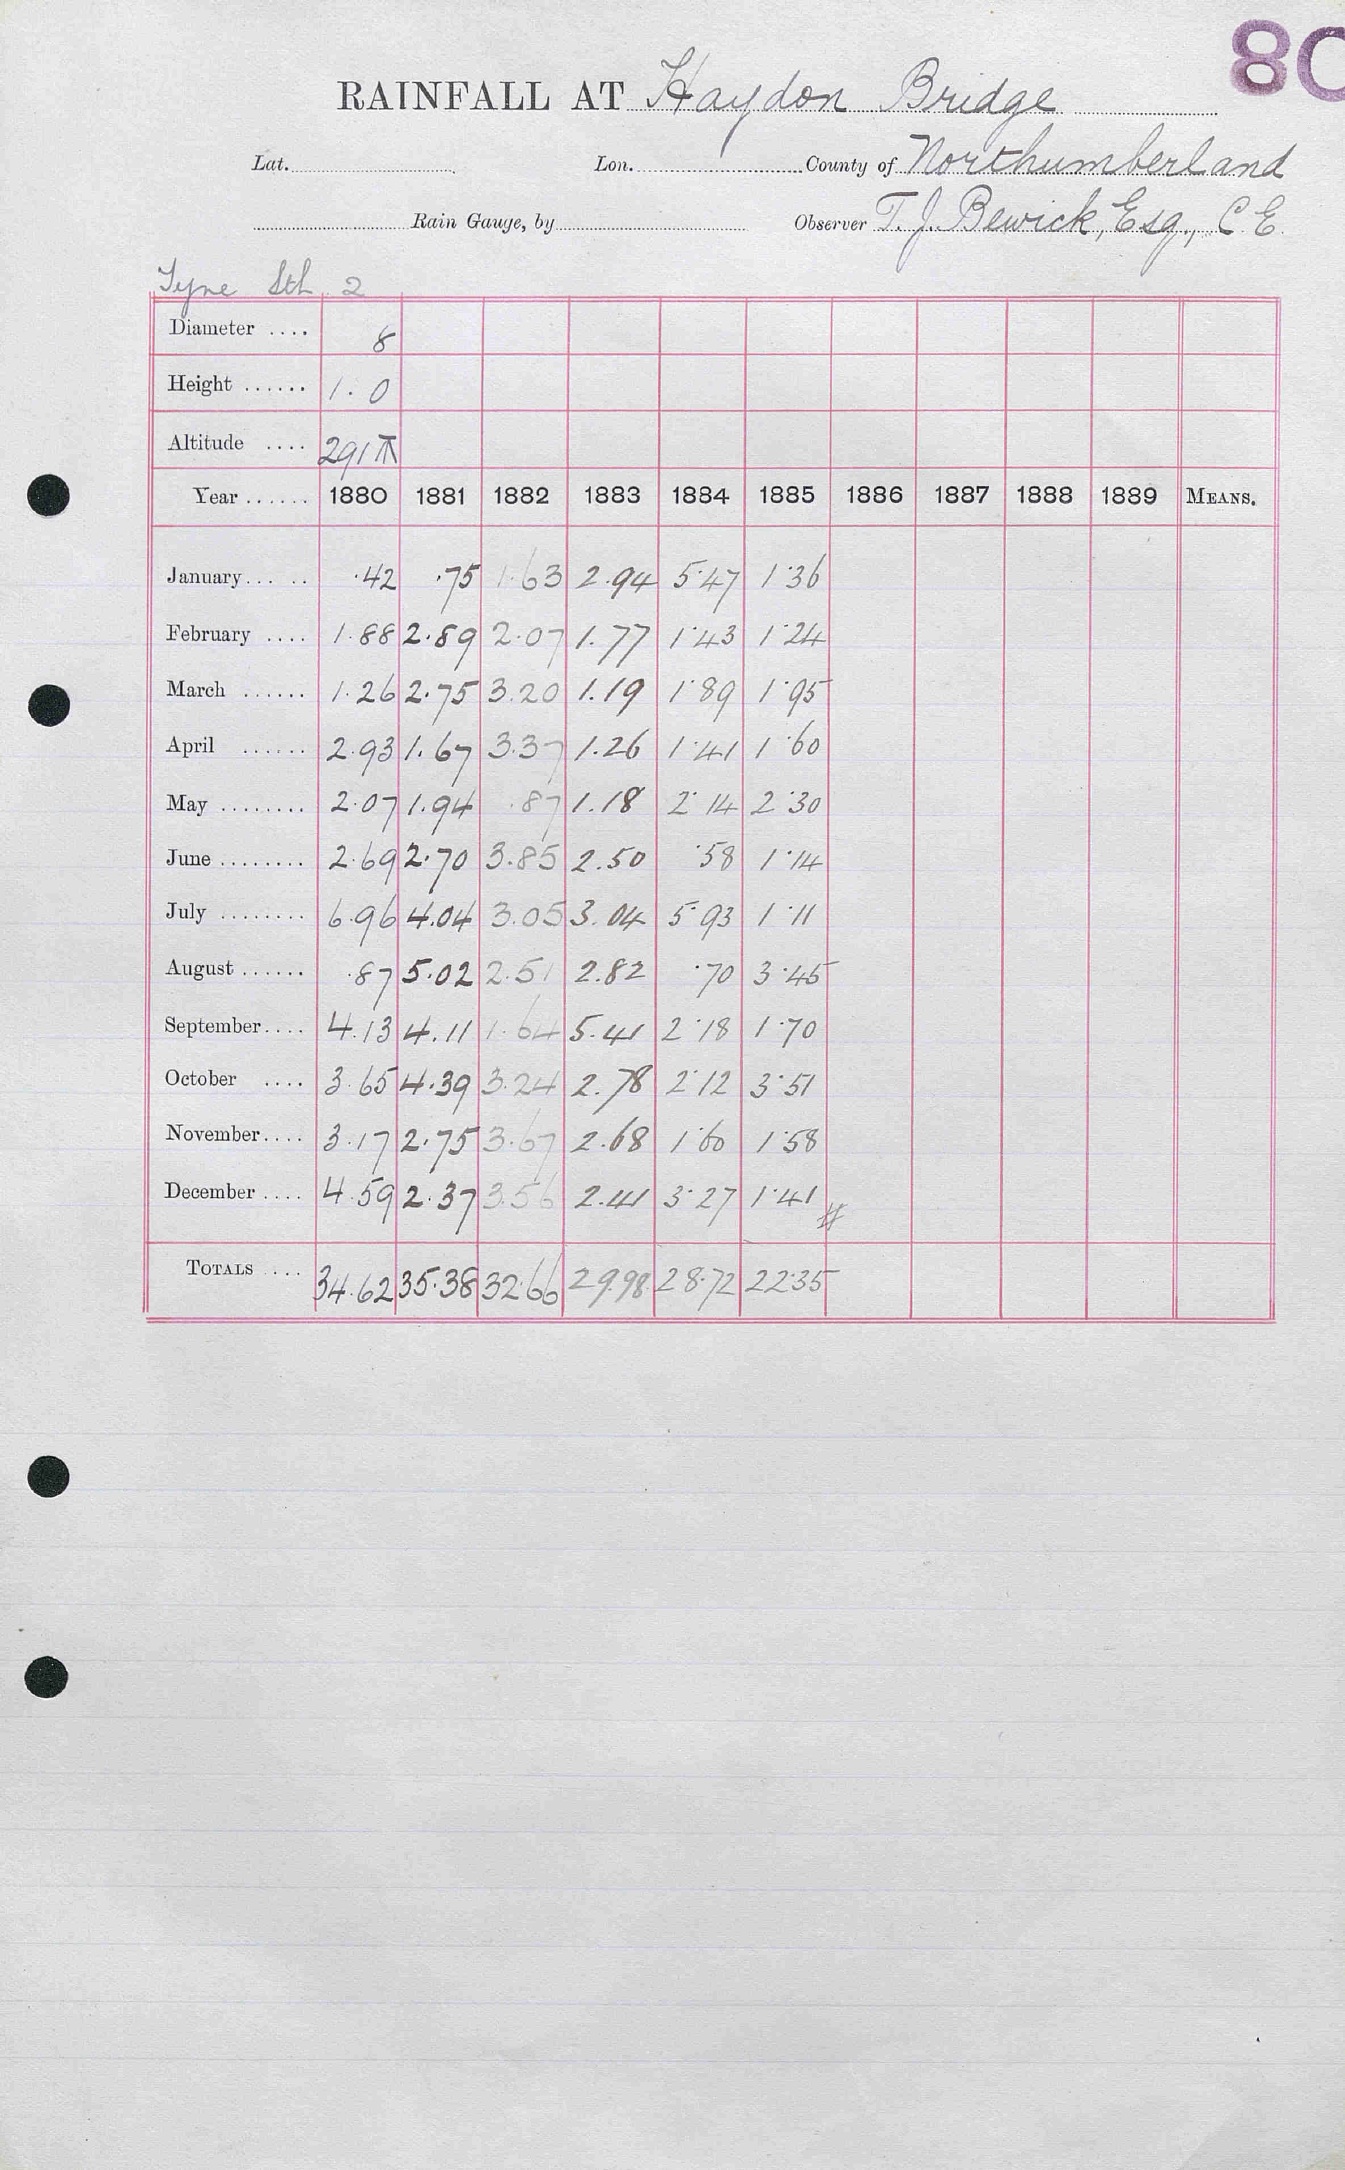 80
RAINFALL AT Haydon Bridge
Lat. Lon. County of Northumberland
Rain Gauge, by Observer T. J. Bewick, Esq., C.E.
Tyne Sth. 2
Diameter .... 8
Height ...... 1.0
Altitude .... 291
Year ...... 1880 1881 1882 1883 1884 1885 1886 1887 1888 1889 MEANS.
January ... .. .42 .75 1.63 2.94 5.47 1.36
February .... 1.88 2.89 2.07 1.77 1.43 1.24
March ...... 1.26 2.75 3.20 1.19 1.89 1.95
April ...... 2.93 1.67 3.37 1.26 1.41 1.60
May ........ 2.07 1.94 .87 1.18 2.14 2.30
June ........ 2.69 2.70 3.85 2.50 .58 1.14
July ........ 6.96 4.04 3.05 3.04 5.93 1.11
August ...... .87 5.02 2.51 2.82 .70 3.45
September .... 4.13 4.11 1.64 5.41 2.18 1.70
October .... 3.65 4.39 3.24 2.78 2.12 3.51
November .... 3.17 2.75 3.67 2.68 1.60 1.58
December .... 4.59 2.37 3.56 2.41 3.27 1.41 #
TOTALS .... 34.62 35.38 32.66 29.98 28.72 22.35